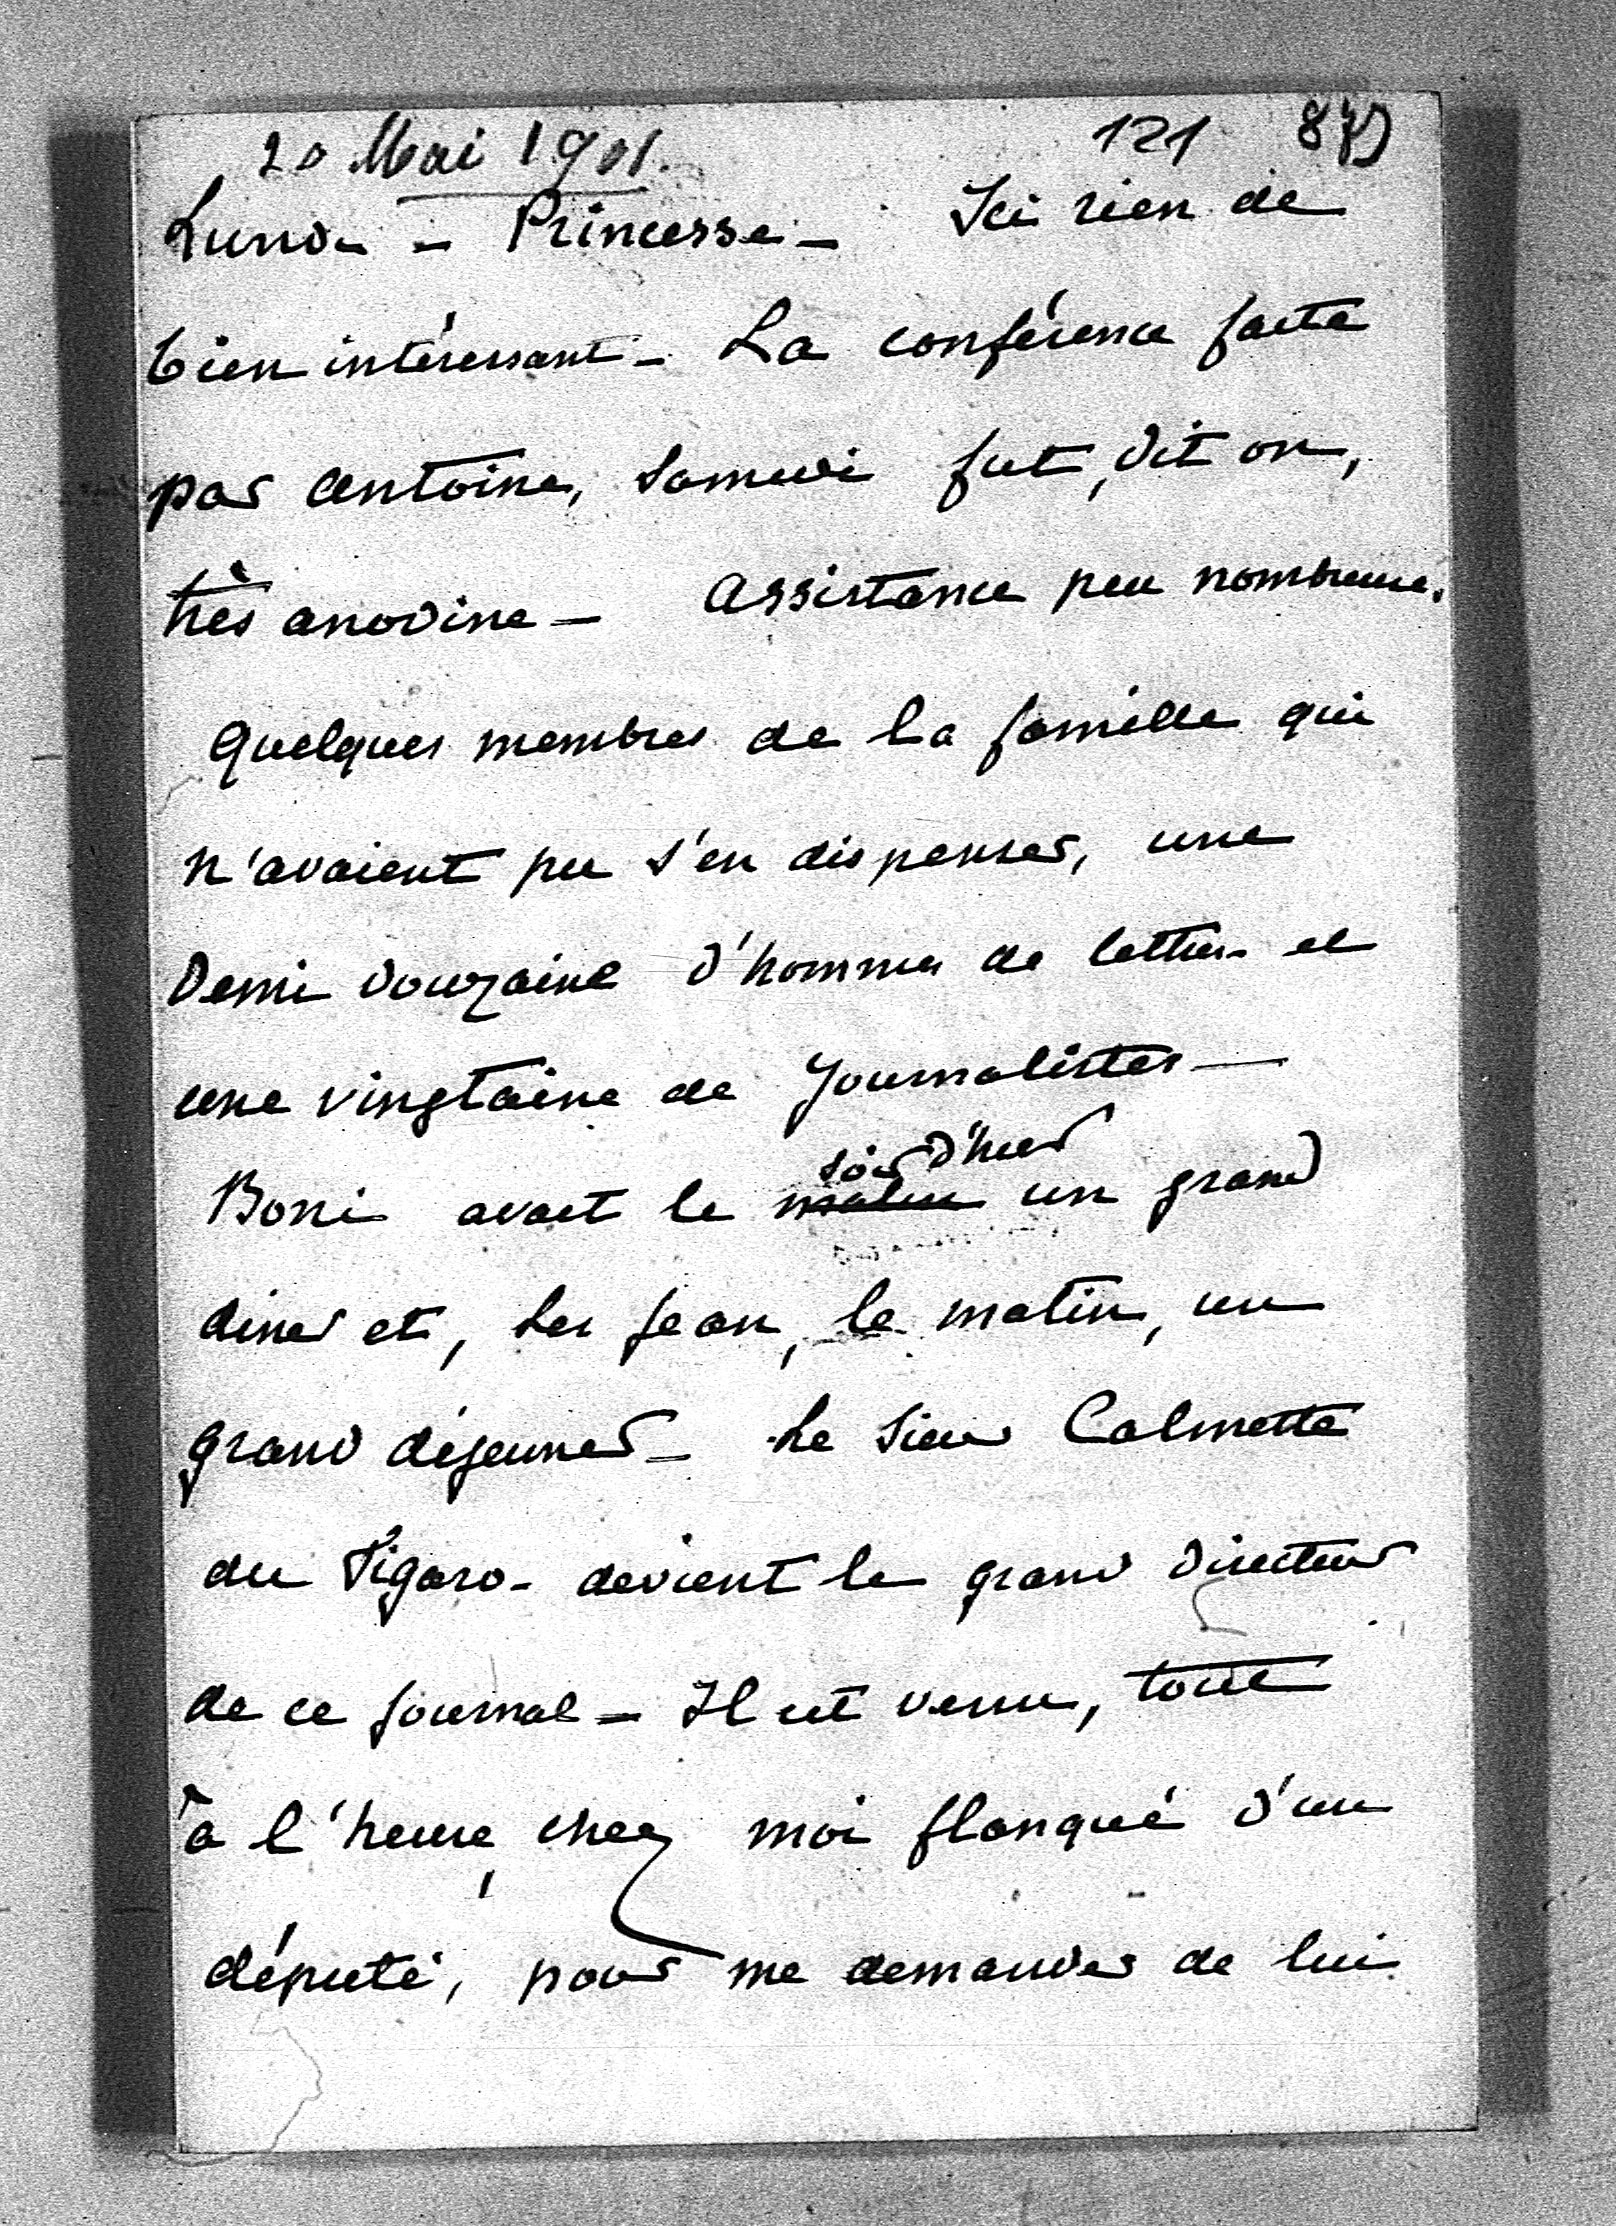 20 Mai 1901. 121
Lundi - Princesse - Ici rien de
bien intéressant - La conférence faite
par Antoine, Samedi fut, dit on,
très anodine - Assistance peu nombreuse.
Quelques membres de la famille qui
n'avaient pu s'en dispenser, une
demi douzaine d'hommes de lettres et
une vingtaine de Journalistes -
soir d'hier
Boni avait le matin un grand
diner et, les Jean, le matin, un
grand déjeuner - Le Sieur Calmette
du Figaro - devient le grand directeur
de ce journal - Il est venu, tout
à l'heure, chez moi flanqué d'un
député, pour me demander de lui